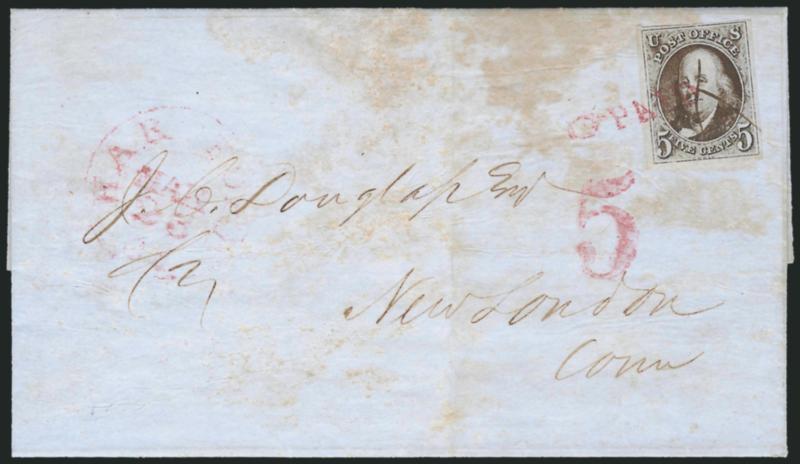 U S
POST OFFICE
PAID
5 FIVE CENTS 5
HAR
J. C. Douglass Esq
5
New London
Conn